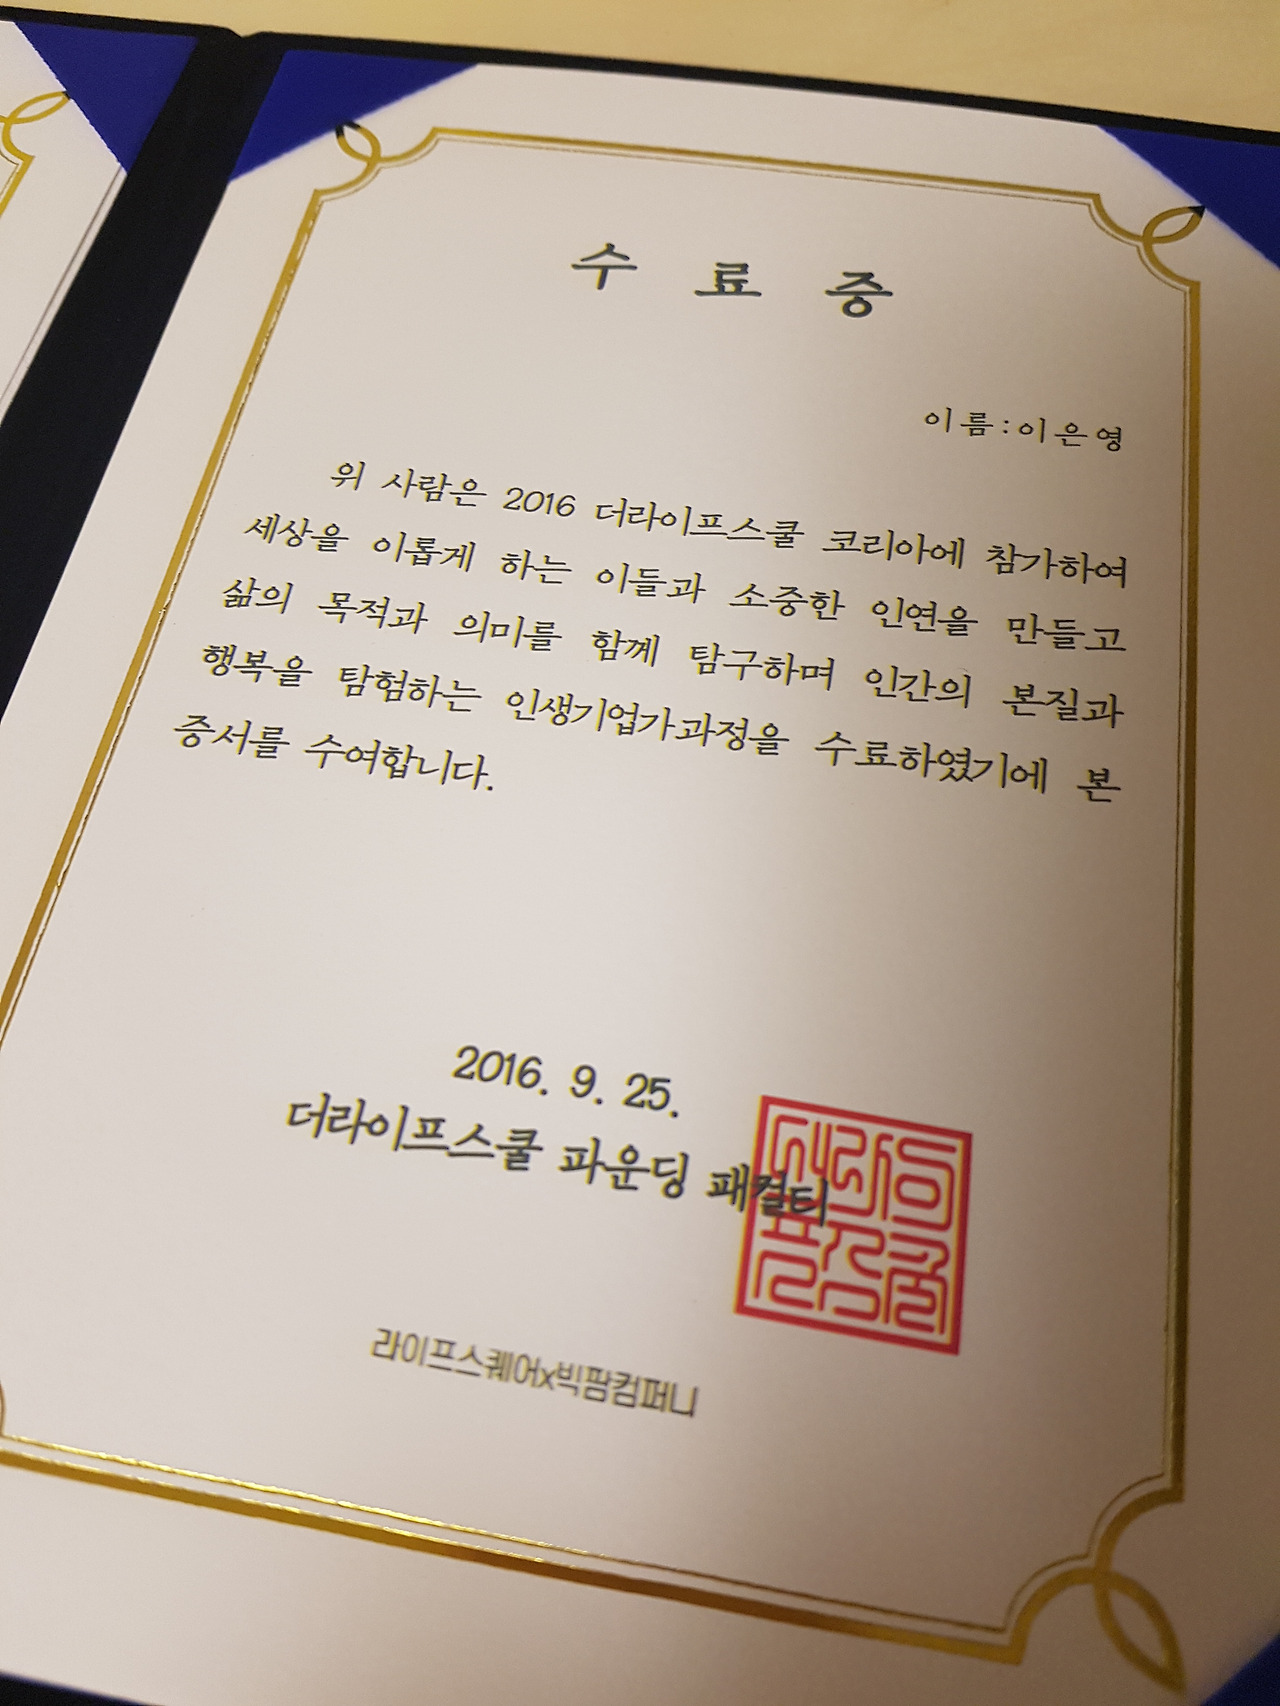 수 료 증
이름:이은영
위 사람은 2016 더라이프스쿨 코리아에 참가하여
세상을 이롭게 하는 이들과 소중한 인연을 만들고
삶의 목적과 의미를 함께 탐구하며 인간의 본질과
행복을 탐험하는 인생기업가과정을 수료하였기에 본
증서를 수여합니다.
2016. 9. 25.
더라이프스쿨 파운딩 패컬티
라이프스퀘어x빅팜컴퍼니